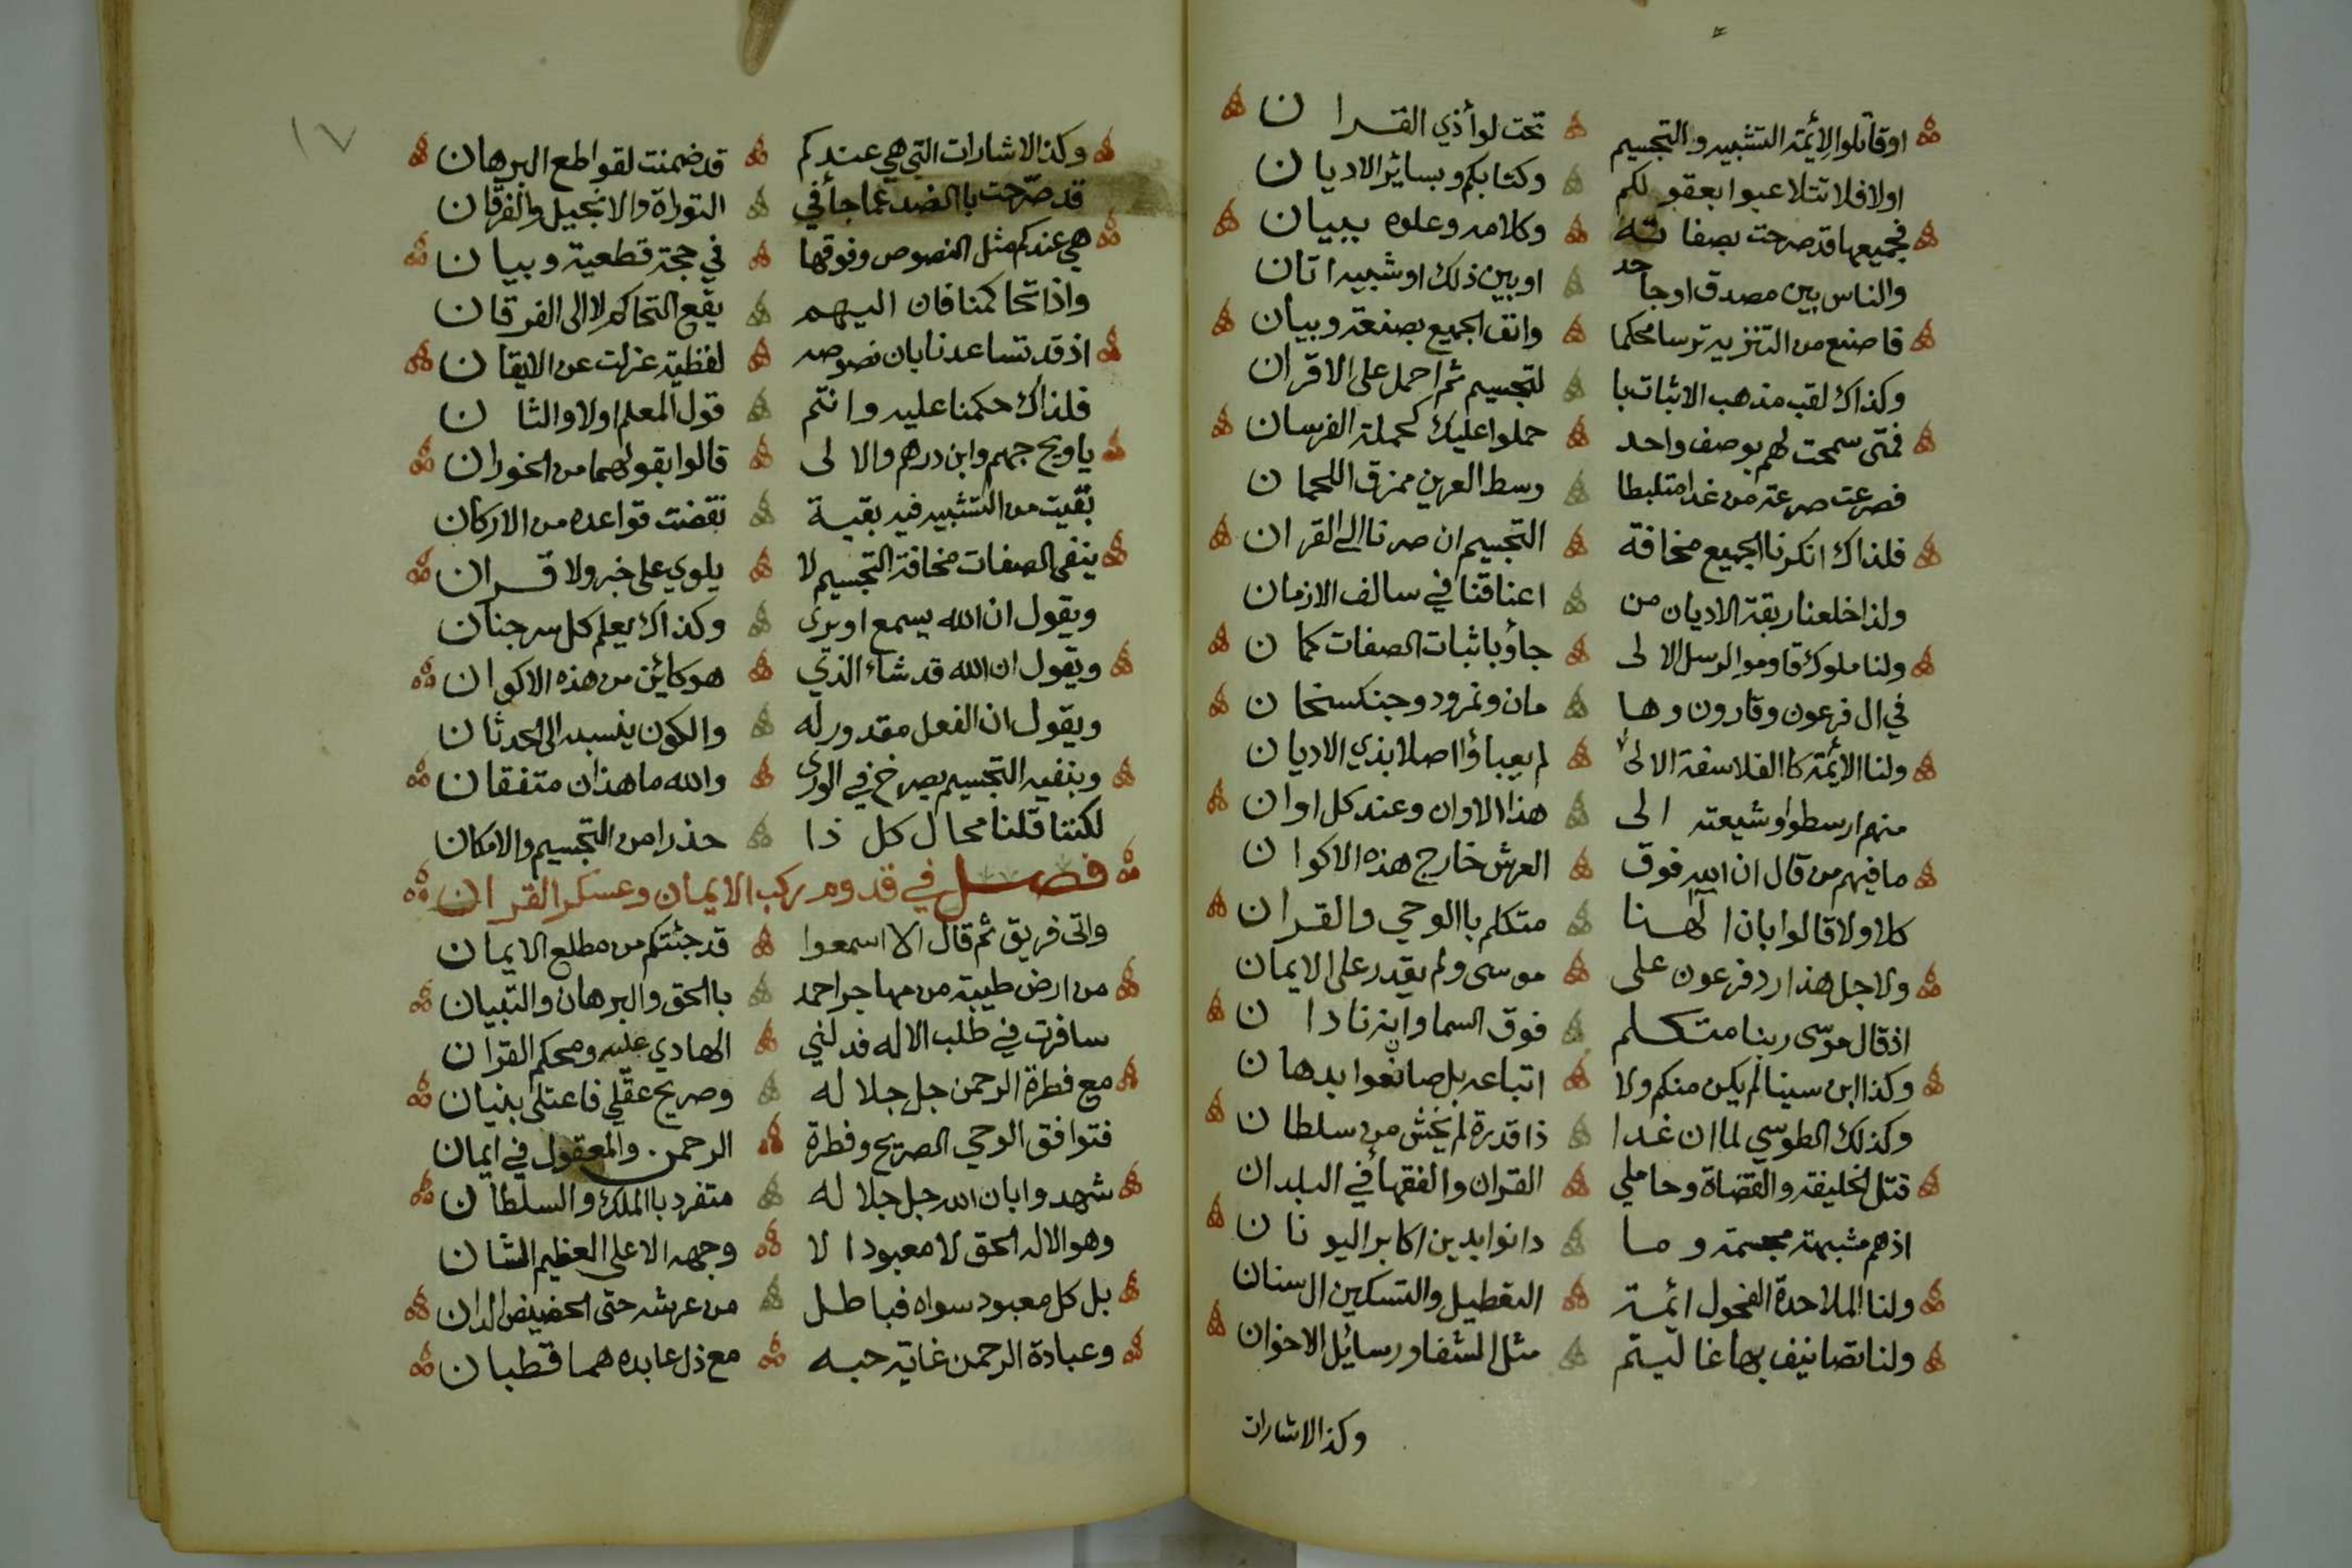 اوقاتلوا لأئمة التشبيه والتجسيم تحت لوأذي القران
اولا فلا تتلاعبوا بعقولكم وكتابكم وبسائر الاديان
فجميعها قد صرحت بصفاته وكلامه وعلوه ببيان
والناس بين مصدق اوجاحد اوبين ذلك اوشبيه اتان
فاصنع من التنزيه ترسا محكما وانف الجميع بصنعة وبيان
وكذاك لقب مذهب الاثبات با لتجسيم ثم احمل على الاقران
فمتى سمحت لهم بوصف واحد حملوا عليك كحملة الفرسان
فصرعت صرعة من غدا متلبطا وسط العرين ممزق اللحمان
فلذاك انكرنا الجميع مخافة التجسيم ان صرنا الى القران
ولذا خلعنا ربقة الاديان من اعناقنا في سالف الازمان
ولنا ملوك قاوموا الرسل الالى جاؤ باثبات الصفات كما ن
في ال فرعون وقارون وها مان ونمرود وجنكسخان
ولنا الائمة كاالفلاسفة الالى لم يعباؤا اصلا بذي الاديان
منهم ارسطوا وشيعته الى هذا الاوان وعند كل اوان
مافيهم من قال ان الله فوق العرش خارج هذه الاكوان
كلا ولا قالوا بان الهنا متكلم باالوحي والقران
ولاجل هذا رد فرعون على موسى ولم يقدر على الايمان
اذقال موسى ربنا متكلم فوق السما وانه نادان
وكذا ابن سينا لم يكن منكم ولا اتباعه بل صانعوا بدهان
وكذلك الطوسي لما ان غدا ذا قدرة لم يخش من سلطان
قتل الخليفة والقضاة وحاملي القران والفقهأ في البلدان
اذهم مشبهة مجسمة وما دانوا بدين اكابر اليونان
ولنا الملاحدة الفحول ائمة التعطيل والتسكين ال سنان
ولنا تصانيف بها غاليتم مثل الشفا ورسايل الاخوان
وكذا الاشارات
١٧
وكذا الاشارات التي هي عندكم قد ضمنت لقواطع البرهان
قد صرحت باالضد عما جأ في التوراة والانجيل والفرقان
هي عندكم مثل النصوص وفوقها في حجة قطعية وبيان
واذا تحاكمنا فان اليهم يقع التحاكم لا الى الفرقان
اذ قد تساعدنا بان نصوصه لفظية عزلت عن الايقان
فلذاك حكمنا عليه وانتم قول المعلم اولا والثان
ياويح جهم وابن درهم والالى قالوا بقولهما من الخوران
بقيت من التشبيه فيه بقية نقضت قواعده من الاركان
ينفي الصفات مخافة التجسيم لا يلوي على خبر ولا قران
ويقول ان الله يسمع اويرى وكذاك يعلم كل سر جنان
ويقول ان الله قد شاء الذي هوكائن من هذه الاكوان
ويقول ان الفعل مقدور له والكون ينسبه الى الحدثان
وبنفيه التجسيم يصرخ في الورى والله ما هذان متفقان
لكننا قلنا محال كل ذا حذرا من التجسيم والامكان
فصل في قدوم ركب الايمان وعسكر القران
واتى فريق ثم قال الا اسمعوا قد جئتكم من مطلع الايمان
من ارض طيبة من مهاجر احمد باالحق والبرهان والتبيان
سافرت في طلب الاله فدلني الهادي عليه ومحكم القران
مع فطرة الرحمن جل جلاله وصريح عقلي فاعتلى ببنيان
فتوافق الوحي الصريح وفطرة الرحمن والمعقول في ايمان
شهدوا بان الله جل جلاله متفرد باالملك والسلطان
وهو الاله الحق لا معبود الا وجهه الاعلى العظيم الشان
بل كل معبود سواه فباطل من عرشه حتى الحضيض الدان
وعبادة الرحمن غاية حبه مع ذل عابده هما قطبان